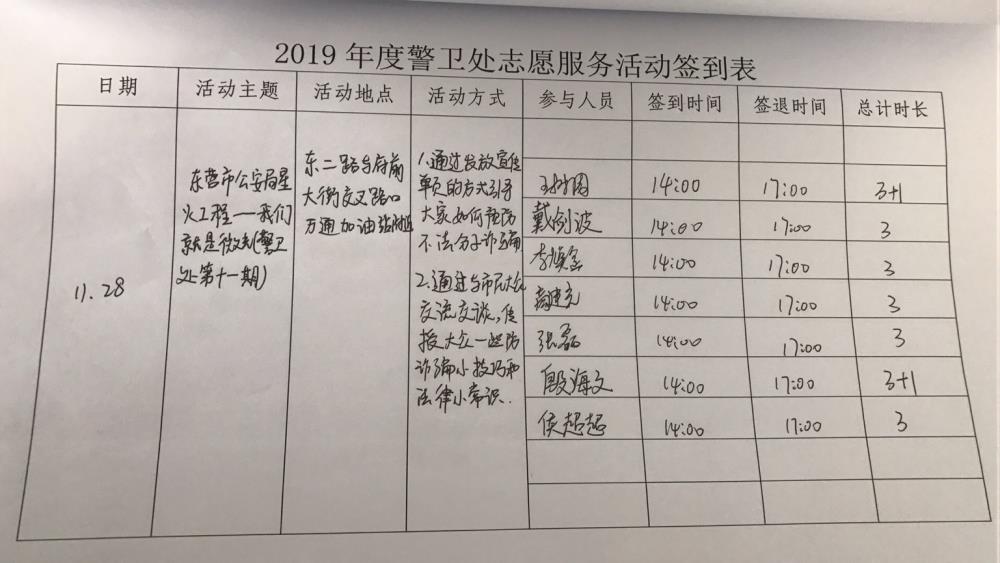 2019年度警卫处志愿服务活动签到表
日期 活动主题 活动地点 活动方式 参与人员 签到时间 签退时间 总计时长
11.28
东营市公安局星
火工程——我们
就是微光(警卫
处第十一期)
东二路与府前
大街交叉路口
万通加油站附近
1.通过发放宣传
单页的方式引导
大家如何预防
不法分子诈骗
2.通过与市民大众
交流交谈,传
授大众一些防
诈骗小技巧和
法律小常识.
14:00 17:00 3+1
戴剑波 14:00 17:00 3
14:00 17:00 3
14:00 17:00 3
张磊 14:00 17:00 3
殷海文 14:00 17:00 3+1
侯超超 14:00 17:00 3